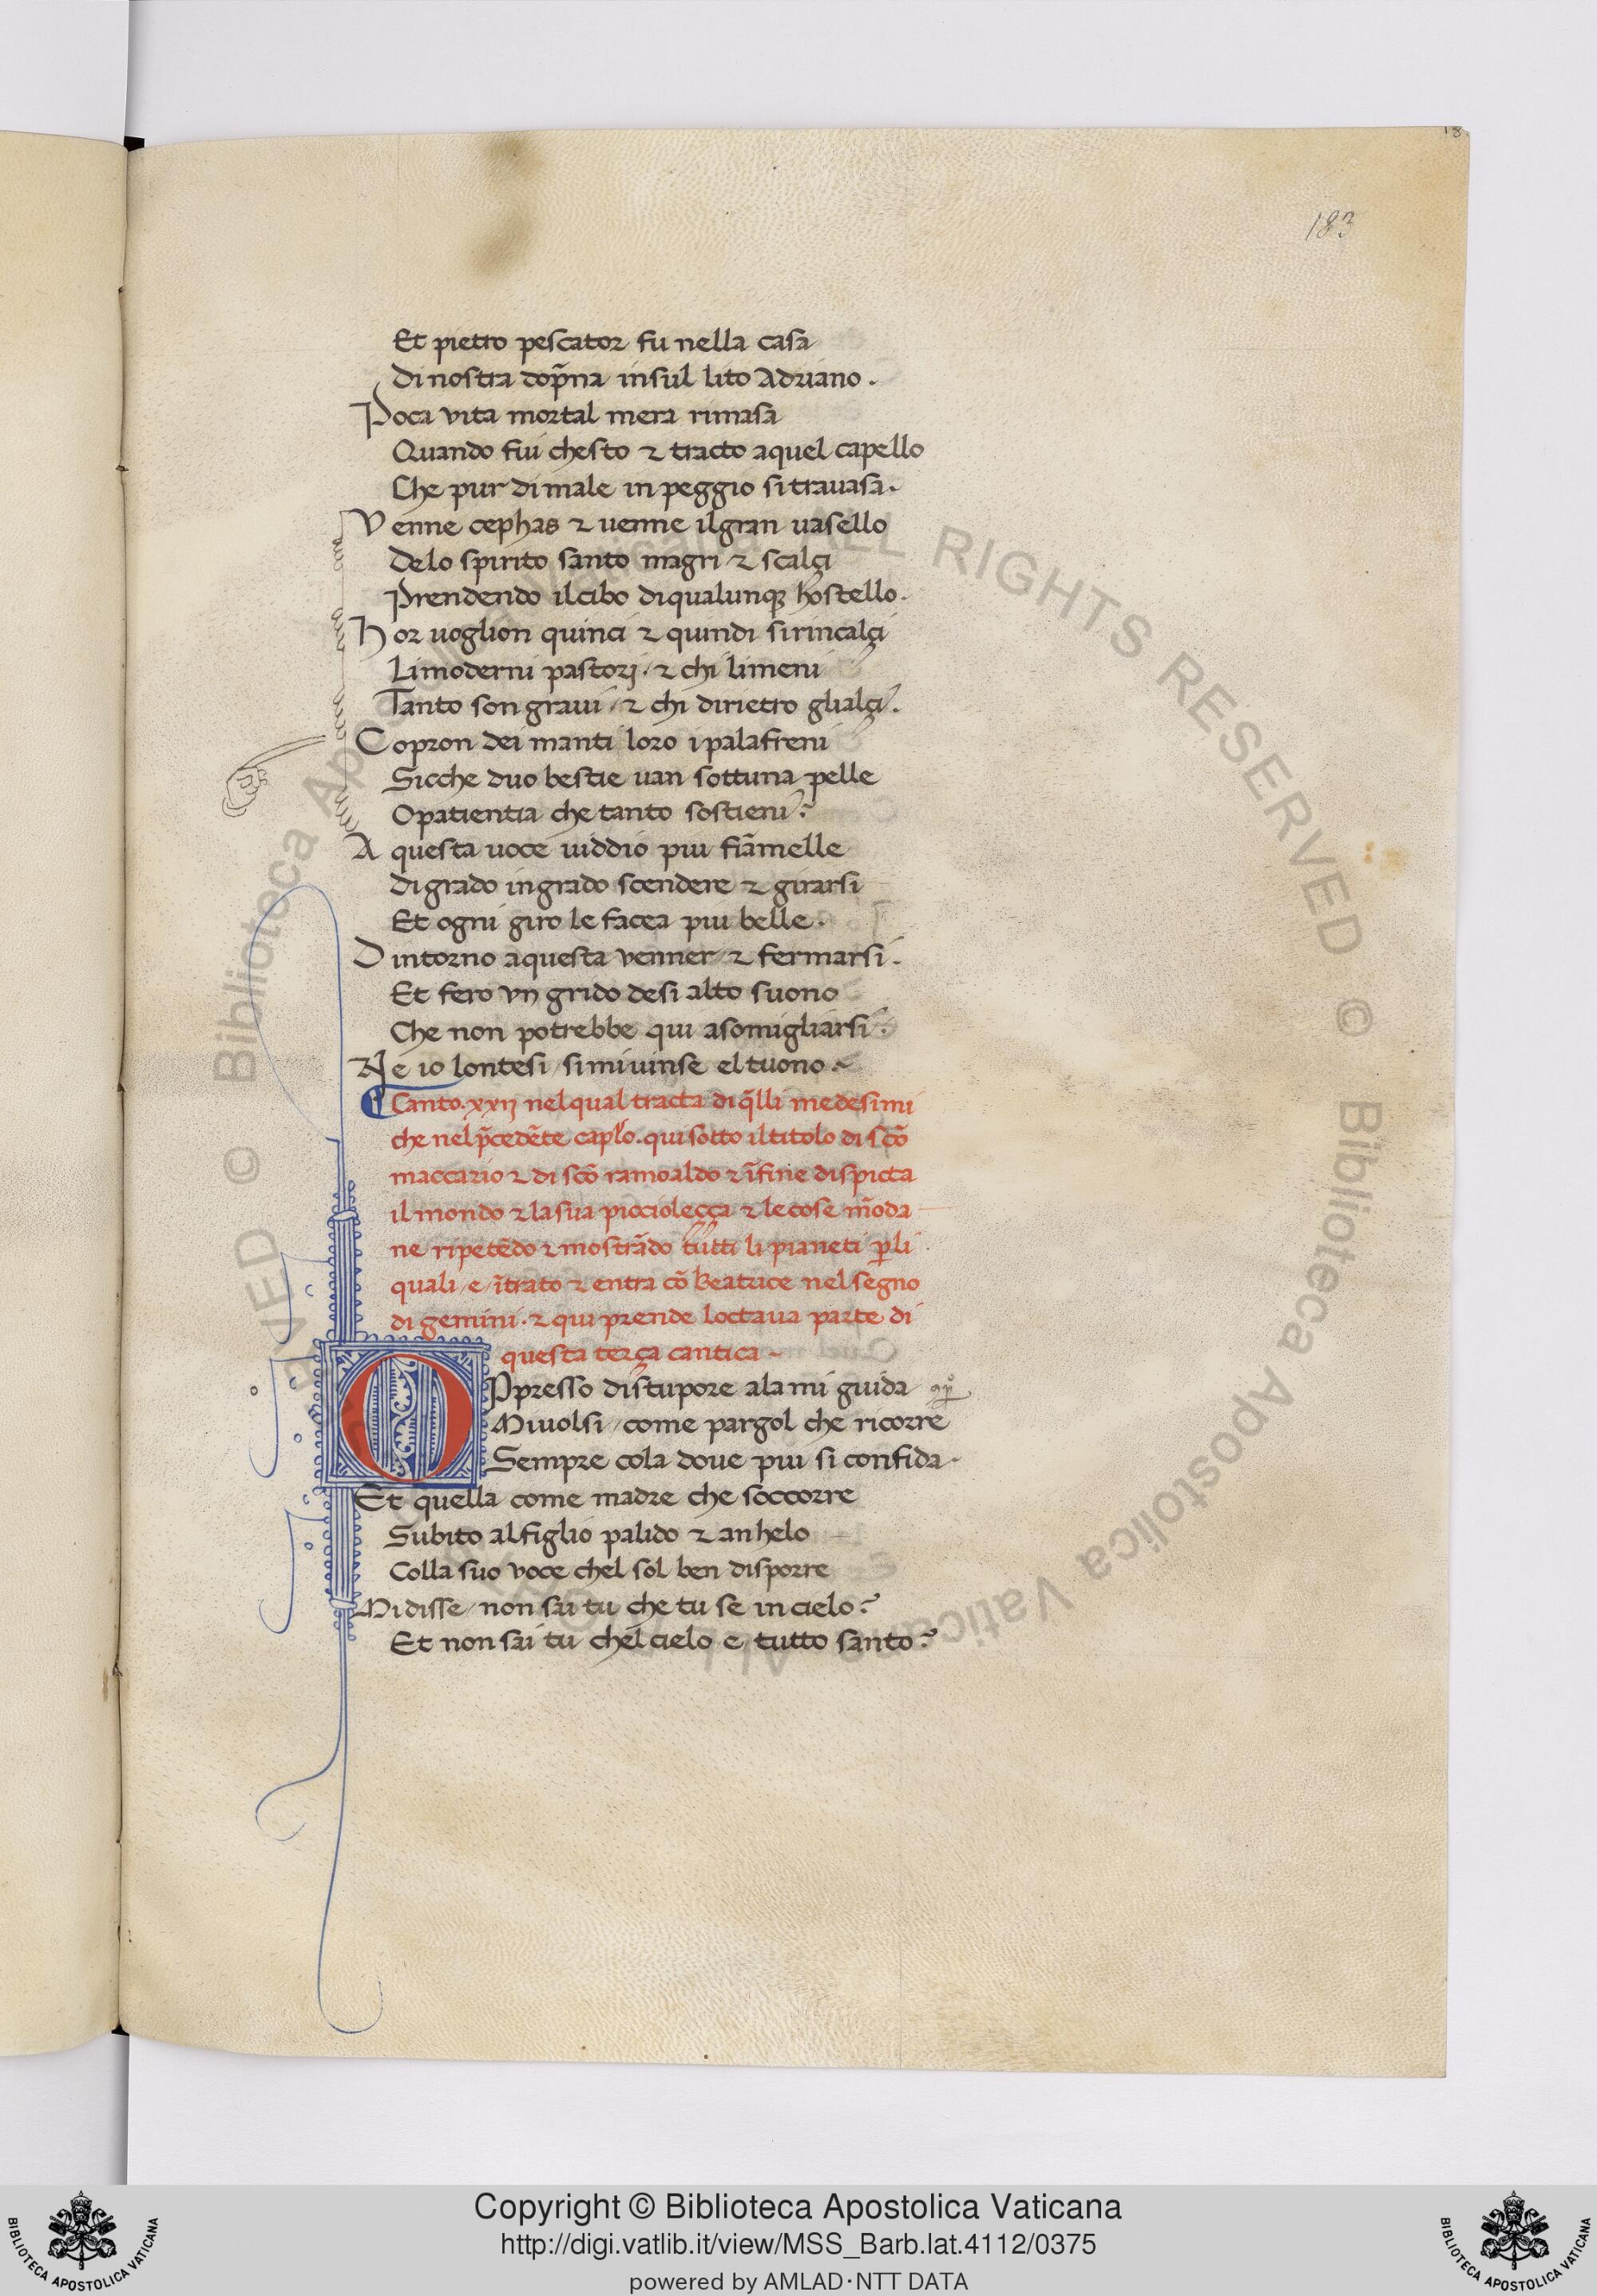 183
Et pietro pescator fu nella casa
Di nostra dop̄na insul lito Adriano.
Poca vita mortal mera rimasa
Quando fui chesto & tracto aquel capello
Che pur dimale inpeggio sitravasa.
Venne cephas & uenne ilgran uasello
Delo spirito santo magri & scalçi
Prendendo ilcibo diqualunqꝫ hostello.
Hor uoglion quinci & quindi sirincalçi
Limoderni pastorj. & chi limeni
Tanto son gravi / & chi dirietro glialçi.
Copron dei manti loro ipalafreni
Sicche duo bestie uan sottuna pelle
Opatientia che tanto sostieni?
A questa uoce viddio piu fiāmelle
Digrado ingrado scendere & girarsi
Et ogni giro le facea piu belle.
Dintorno aquesta venner & fermarsi.
Et fero vn grido desi alto suono
Che non potrebbe qui asomigliarsi.
Ne io lontesi / simivinse el tuono.
Canto. xxij nelqual tracta di q̄lli medesimi
che nel p̄cedēte caplo. qui sotto iltitolo di scō
maccario & di scō ramoaldo & īfine dispicta
il mondo & lasua picciolecça & lecose mōda
ne ripetēdo & mostrādo tutti li pianeti ꝑli
quali / e / ītrato & entra cō beatrice nel segno
di gemini. & qui prende loctaua parte di
questa terça cantica
OPpresso distupore ala mi guida
Mivolsi / come pargol che ricorre
Sempre cola dove piu si confida.
Et quella come madre che soccorre
Subito alfiglio palido & anhelo
Colla suo voce chel sol ben disporre
Midisse / non sai tu che tu se incielo?
Et non sai tu chel cielo e tutto santo?
© Biblioteca Apostolica Vaticana ALL RIGHTS RESERVED © Biblioteca Apostolica Vaticana ALL RIGHTS RESERVED
Copyright © Biblioteca Apostolica Vaticana
http://digi.vatlib.it/view/MSS_Barb.lat.4112/0375
powered by AMLAD·NTT DATA
BIBLIOTECA APOSTOLICA VATICANA
BIBLIOTECA APOSTOLICA VATICANA